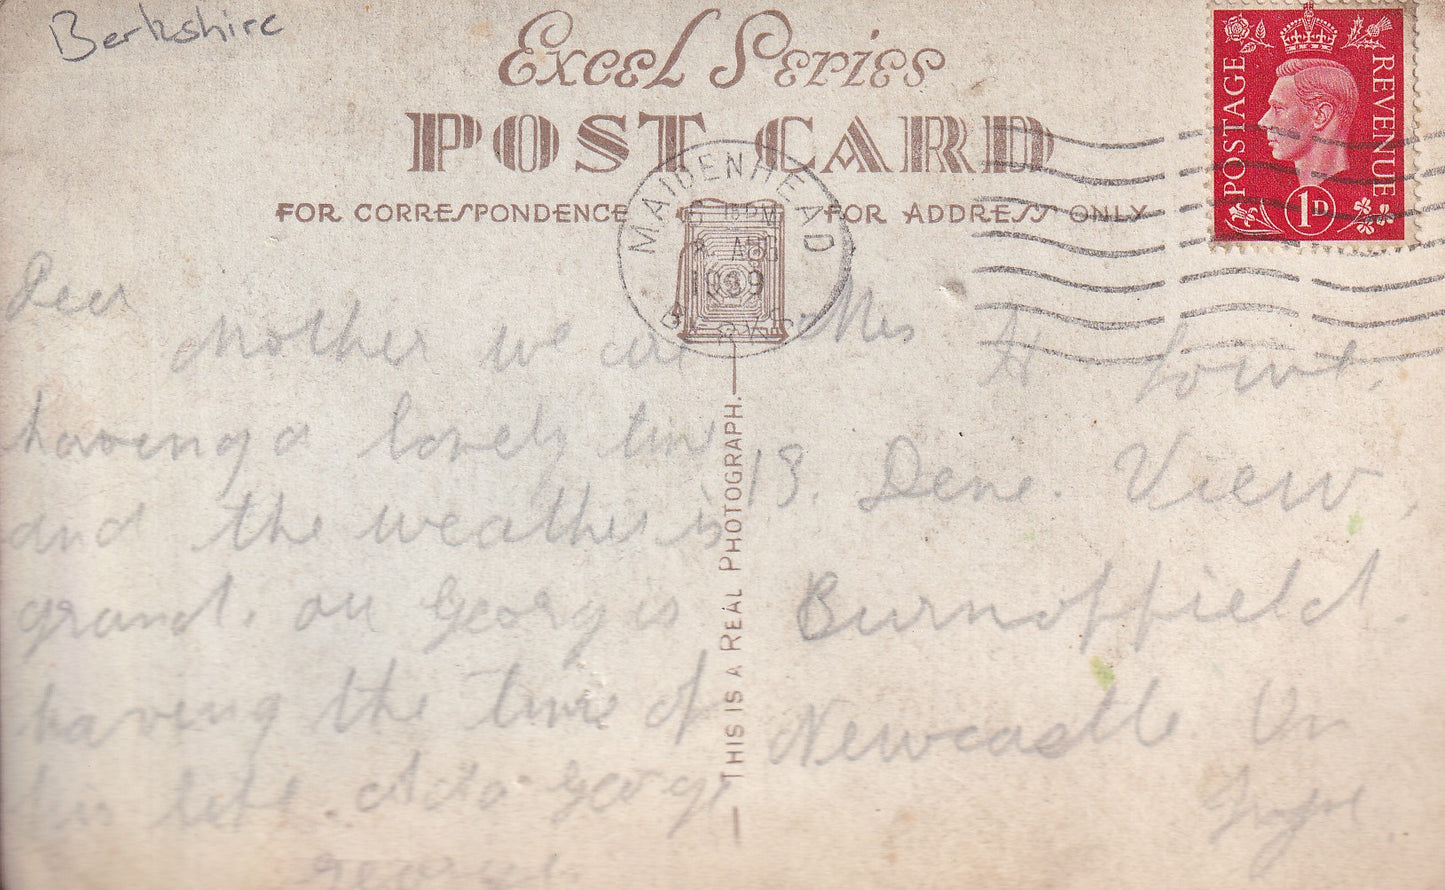 Berkshire
Excel Series
POST CARD
FOR CORRESPONDENCE
FOR ADDRESS ONLY
POSTAGE REVENUE
1D
MAIDENHEAD
PM
AUG
1939
BERKS
Dear
Mother we are
having a lovely time
and the weather is
grand. our George is
having the time of
his life. Ada George
George
Mrs H
19. Dene. View,
Burnopfield.
Newcastle On
Tyne
THIS IS A REAL PHOTOGRAPH.